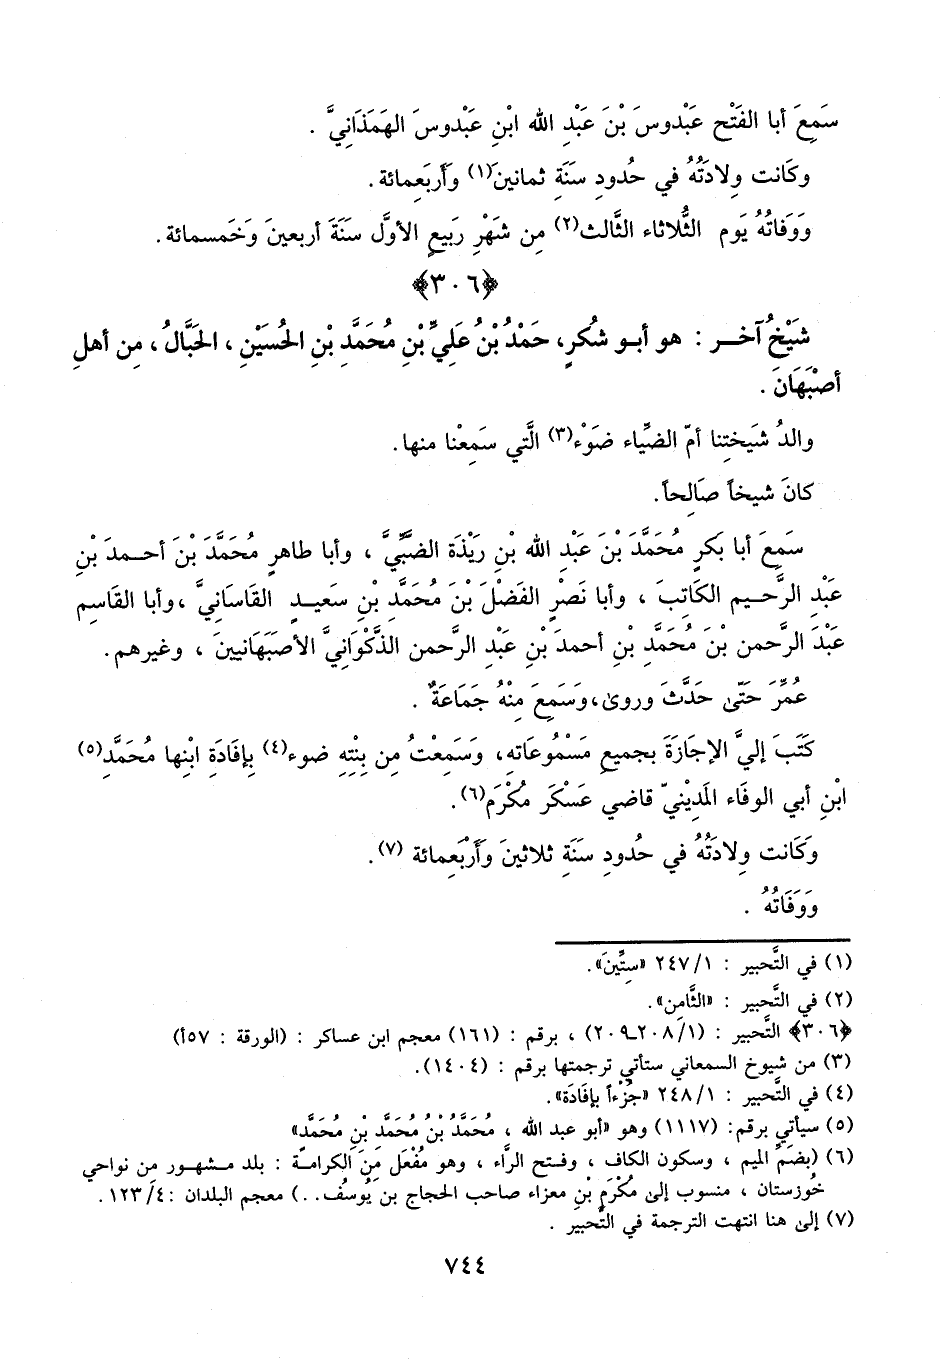 سَمِعَ أبا الفَتْحِ عَبْدوسَ بْنَ عَبْدِ الله ابْنِ عَبْدوسَ الهَمَذَانِيَّ .
وكَانت وِلادَتُهُ في حُدودِ سَنَةِ ثمانينَ(١) وأَربَعِمائة.
وَوَفاتُهُ يَوم الثُّلاثاء الثَّالث(٢) مِن شَهْرِ رَبيعٍ الأوَّل سنَةَ أربعينَ وَخَمسمائة.
﴿٣٠٦﴾
شَيْخٌ آخـــر : هو أبـو شُكرٍ، حَمْدُ بْنُ عَلِيِّ بْنِ مُحَمَّدِ بْنِ الحُسَيْنِ ، الحَبَّالُ ، مِن أهلِ
أصْبَهَانَ .
والدُ شيَختِنا أمّ الضِّياء ضَوْء(٣) الَّتي سَمِعْنا منها.
كانَ شيخاً صَالِحاً.
سَمِعَ أبا بَكرٍ مُحَمَّدَ بْنَ عَبْدِ الله بْنِ رِيْذَة الضَّبِّيَّ ، وأبا طاهرٍ مُحَمَّدَ بْنَ أحــمدَ بْنِ
عَبْدِ الرَّحــيم الكَاتِبَ ، وأبا نَصْرٍ الفَضْلَ بْنَ مُحَمَّدِ بْنِ سعَيـدٍ القَاسَانِيَّ ،وأبا القَاسِم
عَبْدَ الرَّحمن بْنَ مُحَمَّدِ بْنِ أحمدَ بْنِ عَبْدِ الرَّحمن الذَّكْوَانِيَّ الأصبَهَانيينَ ، وغيرهم.
عُمِّرَ حَتّى حَدَّثَ وروىٰ،وسَمِعَ مِنْهُ جَمَاعَةٌ .
كَتَبَ إليَّ الإجَازَةَ بجميعِ مَسْمُوعَاتهِ، وَسَمِعْتُ مِن بِنْتِهِ ضوء(٤) بإفَادَةِ ابْنِها مُحَمَّدِ(٥)
ابْنِ أبي الوفَاء المَدِيْنيّ قاضي عَسْكَر مُكْرَم(٦).
وكَانت وِلادَتُهُ في حُدودِ سَنَةِ ثلاثينَ وَأَرْبَعمائة (٧).
وَوفَاتُهُ .
(١) في التَّحبير : ٢٤٧/١ «سِتِّينَ».
(٢) في التَّحبير : «الثَّامِن».
﴿٣٠٦﴾ التَّحبير : (٢٠٨/١ـ٢٠٩) ، برقم : (١٦١) معجم ابن عساكر : (الورقة : ٥٧أ)
(٣) من شيوخ السمعاني ستأتي ترجمتها برقم : (١٤٠٤).
(٤) في التَّحبير : ٢٤٨/١ «جُزْءاً بإفَادَة».
(٥) سيأتي برقم: (١١١٧) وهو «أبو عبد الله ، مُحَمَّدُ بْنُ مُحَمَّدِ بْنِ مُحَمَّدٍ»
(٦) (بضَم الميم ، وسكون الكاف ، وفـتح الرَّاء ، وهو مُفْعَل مِنَ الكرامـة : بلد مـشهـور مِن نواحي
خُوزستان ، منسوب إلىٰ مُكْرَم بْنِ معزاء صاحب الحجاج بن يُوسُف..) معجم البلدان :١٢٣/٤.
(٧) إلىٰ هنا انتهت الترجمة في التَّحبير .
٧٤٤